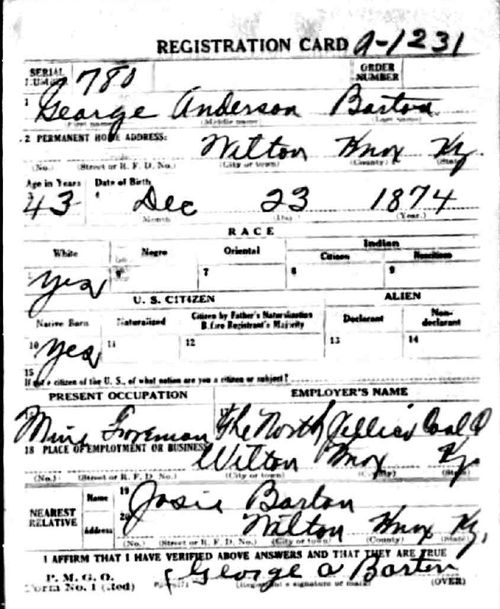 REGISTRATION CARD A-1231
SERIAL NUMBER 780 ORDER NUMBER
1 George Anderson Barton
(First name) (Middle name) (Last name)
2 PERMANENT HOME ADDRESS: Wilton Knox Ky.
(No.) (Street or R. F. D. No.) (City or town) (County) (State)
Age in Years Date of Birth
3 43 4 Dec 23 1874
Month (Day.) (Year.)
RACE
White Negro Oriental Indian
Citizen Noncitizen
5 Yes 6 7 8 9
U. S. CITIZEN ALIEN
Native Born Naturalized Citizen by Father's Naturalization Before Registrant's Majority Declarant Non-declarant
10 Yes 11 12 13 14
15 If not a citizen of the U. S., of what nation are you a citizen or subject?
PRESENT OCCUPATION EMPLOYER'S NAME
Mine Foreman The North Jellico Coal Co
18 PLACE OF EMPLOYMENT OR BUSINESS Wilton Knox Ky.
(No.) (Street or R. F. D. No.) (City or town) (County) (State)
NEAREST RELATIVE Name 19 Josie Barton
Address 20 Wilton Knox Ky.
(No.) (Street or R. F. D. No.) (City or town) (County) (State)
I AFFIRM THAT I HAVE VERIFIED ABOVE ANSWERS AND THAT THEY ARE TRUE
P. M. G. O.
Form No. 1 (Red) George A Barton
(Registrant's signature or mark) (OVER)